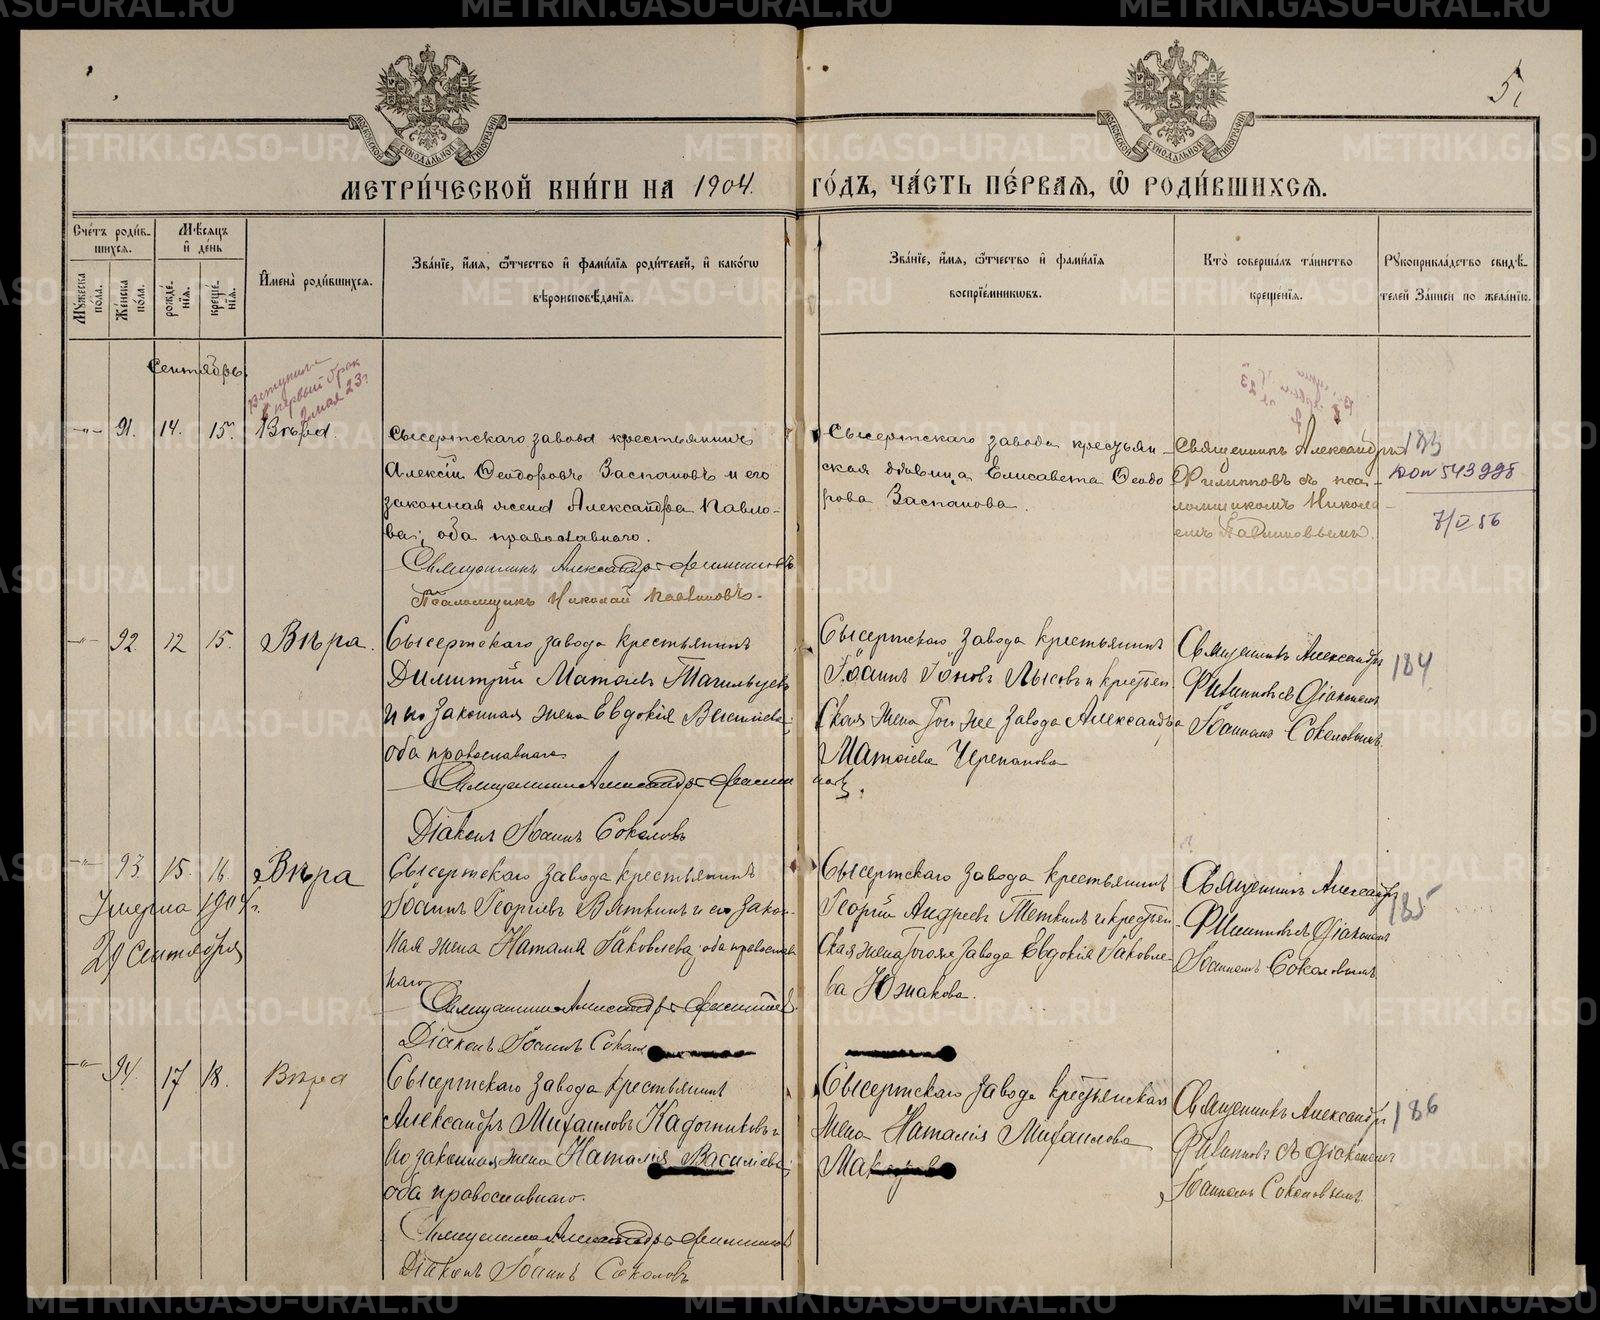 5
МЕТРИ́ЧЕСКОЙ КНИ́ГИ НА 1904.
ГО́ДЪ, ЧА́СТЬ ПЕ́РВАѦ, Ѽ РОДИ́ВШИХСѦ.
Сче́тъ роди́в-
шихсѧ.
Мꙋжеска по́ла.
Же́нска по́ла.
Мѣ́сѧцъ и҆ де́нь
рожде́нїѧ.
креще́нїѧ.
И҆мена̀ роди́вшихсѧ.
Зва́нїе, и҆́мѧ, ѻ҆́тчество и҆ фами́лїѧ роди́телей, и҆ како́гѡ
вѣроисповѣ́данїѧ.
Зва́нїе, и҆́мѧ, ѻ҆́тчество и҆ фами́лїѧ
воспрїе́мникѡвъ.
Кто̀ соверша́лъ та́инство
креще́нїѧ.
Рꙋкоприкла́дство свидѣ́-
телей За́писи по жела́нїю.
Сентябрь.
Вступила
в первый брак
2 мая 23 г.
-"- 91. 14. 15. Вѣра.
Сысертскаго завода крестьянинъ
Алексѣй Ѳеодоровъ Заспановъ и его
законная жена Александра Павло-
ва; оба православнаго.
Священникъ Александръ Филипповъ
Псаломщикъ Николай
Сысертскаго завода крестьян-
ская дѣвица Елисавета Ѳеодо
рова Заспанова.
Священникъ Александръ
Филипповъ съ пса-
ломщикомъ Никола-
емъ
183
543998
7/IV 56
-"- 92. 12 15. Вѣра.
Сысертскаго завода крестьянинъ
Димитрій Матѳіевъ Тагильцевъ
и его законная жена Евдокія Васильева;
оба православнаго
Священникъ Александръ Филипп
повъ.
Діаконъ Іоаннъ Соколовъ
Сысертскаго завода крестьянинъ
Іоаннъ Іоновъ Лысовъ и крестьян
ская жена того же завода Александра
Матѳіева Черепанова
Священникъ Александръ
Филипповъ съ діакономъ
Іоанномъ Соколовымъ.
184
-"- 93. 15. 16. Вѣра
Умерла 1904 г.
29 Сентября
Сысертскаго завода крестьянинъ
Іоаннъ Георгіевъ Вяткинъ и его закон-
ная жена Наталія Іаковлева; оба православ
наго
Священникъ Александръ Филипповъ.
Діаконъ Іоаннъ Соколов
Сысертскаго завода крестьянинъ
Георгій Андреевъ Теткинъ и крестьян
ская жена того же завода Евдокія Іаковле-
ва Южакова.
Священникъ Александръ
Филипповъ съ діакономъ
Іоанномъ Соколовымъ
185
-"- 94. 17 18. Вѣра
Сысертскаго завода крестьянинъ
Александръ Михаиловъ Кадочниковъ и
его законная жена Наталія Василіева;
оба православнаго.
Священникъ Александръ Филипповъ
Діаконъ Іоаннъ Соколовъ
Сысертскаго завода крестьянская
жена Наталія Михаилова
Священникъ Александръ
Филипповъ съ діакономъ
Іоанномъ Соколовымъ.
186
METRIKI.GASO-URAL.RU